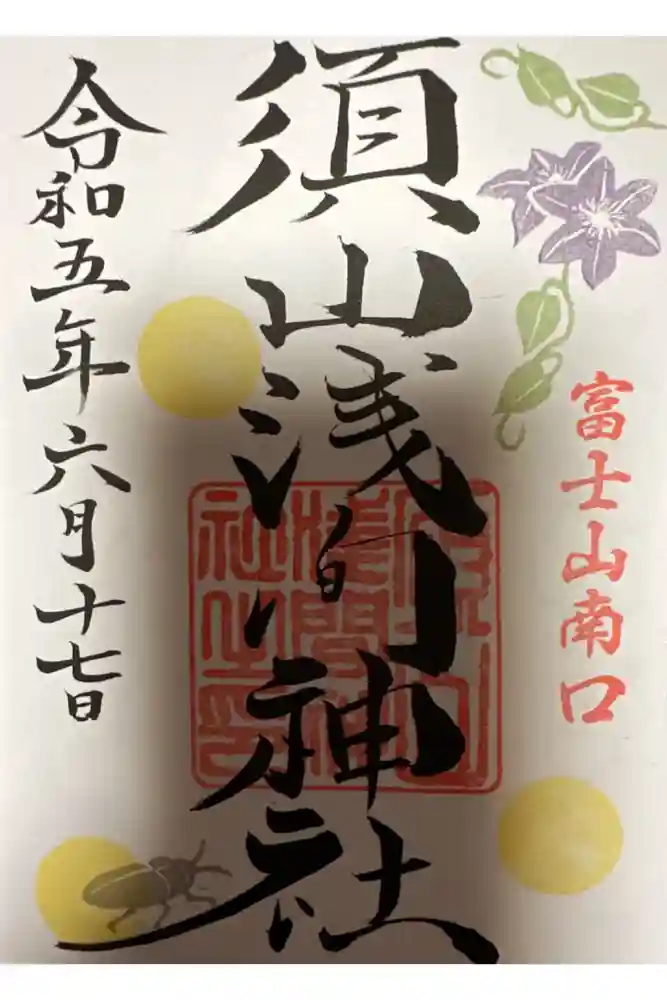 富士山南口
須山浅间神社
須山浅間神社之印
令和五年六月十七日